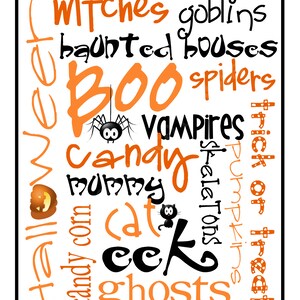 witches
goblins
haunted houses
Boo
spiders
vampires
candy
mummy
cat
eek
ghosts
Halloween
candy corn
skeletons
pumpkins
trick or treat